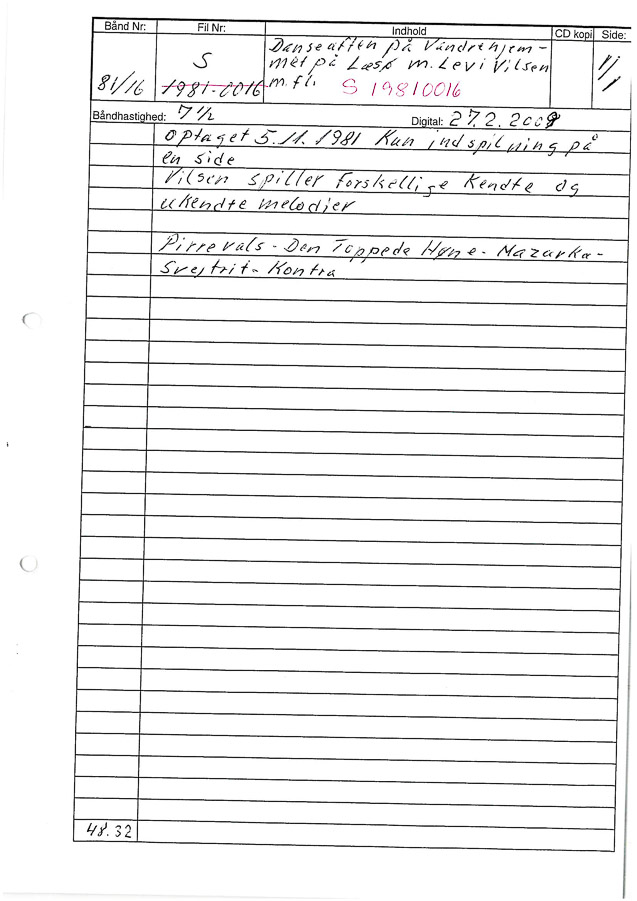 Bånd Nr: Fil Nr: Indhold CD kopi Side:
81/16 S 1981-0016 Danseaften på Vandrehjem-
met på Læsø m. Levi Vilsen
m.fl. S 19810016 1/1
Båndhastighed: 7 1/2 Digital: 27.2.2008
Optaget 5.11.1981 Kun indspilning på
en side
Vilsen spiller forskellige kendte og
ukendte melodier
Pirrevals - Den Toppede Høne - Mazurka -
Svejtrit - Kontra
48.32